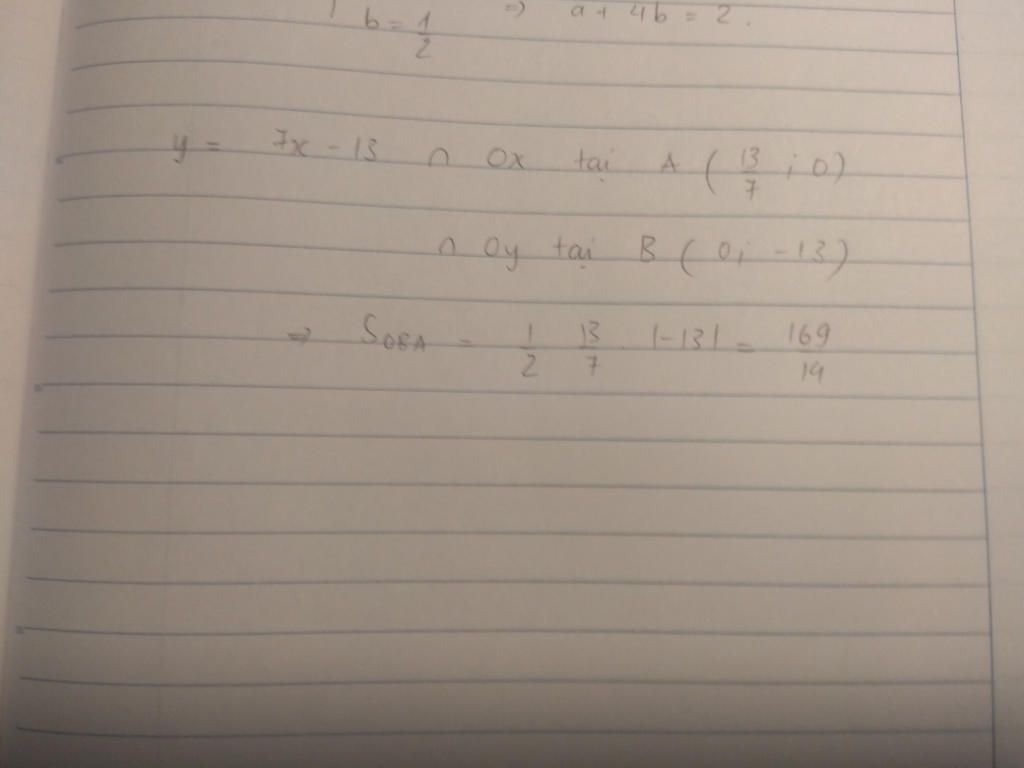 b = 1/2 => a + 4b = 2.
y = 7x - 13 ∩ Ox tại A ( 13/7 ; 0 )
∩ Oy tại B ( 0 ; -13 )
=> SOBA = 1/2 13/7 . |-13| = 169/14